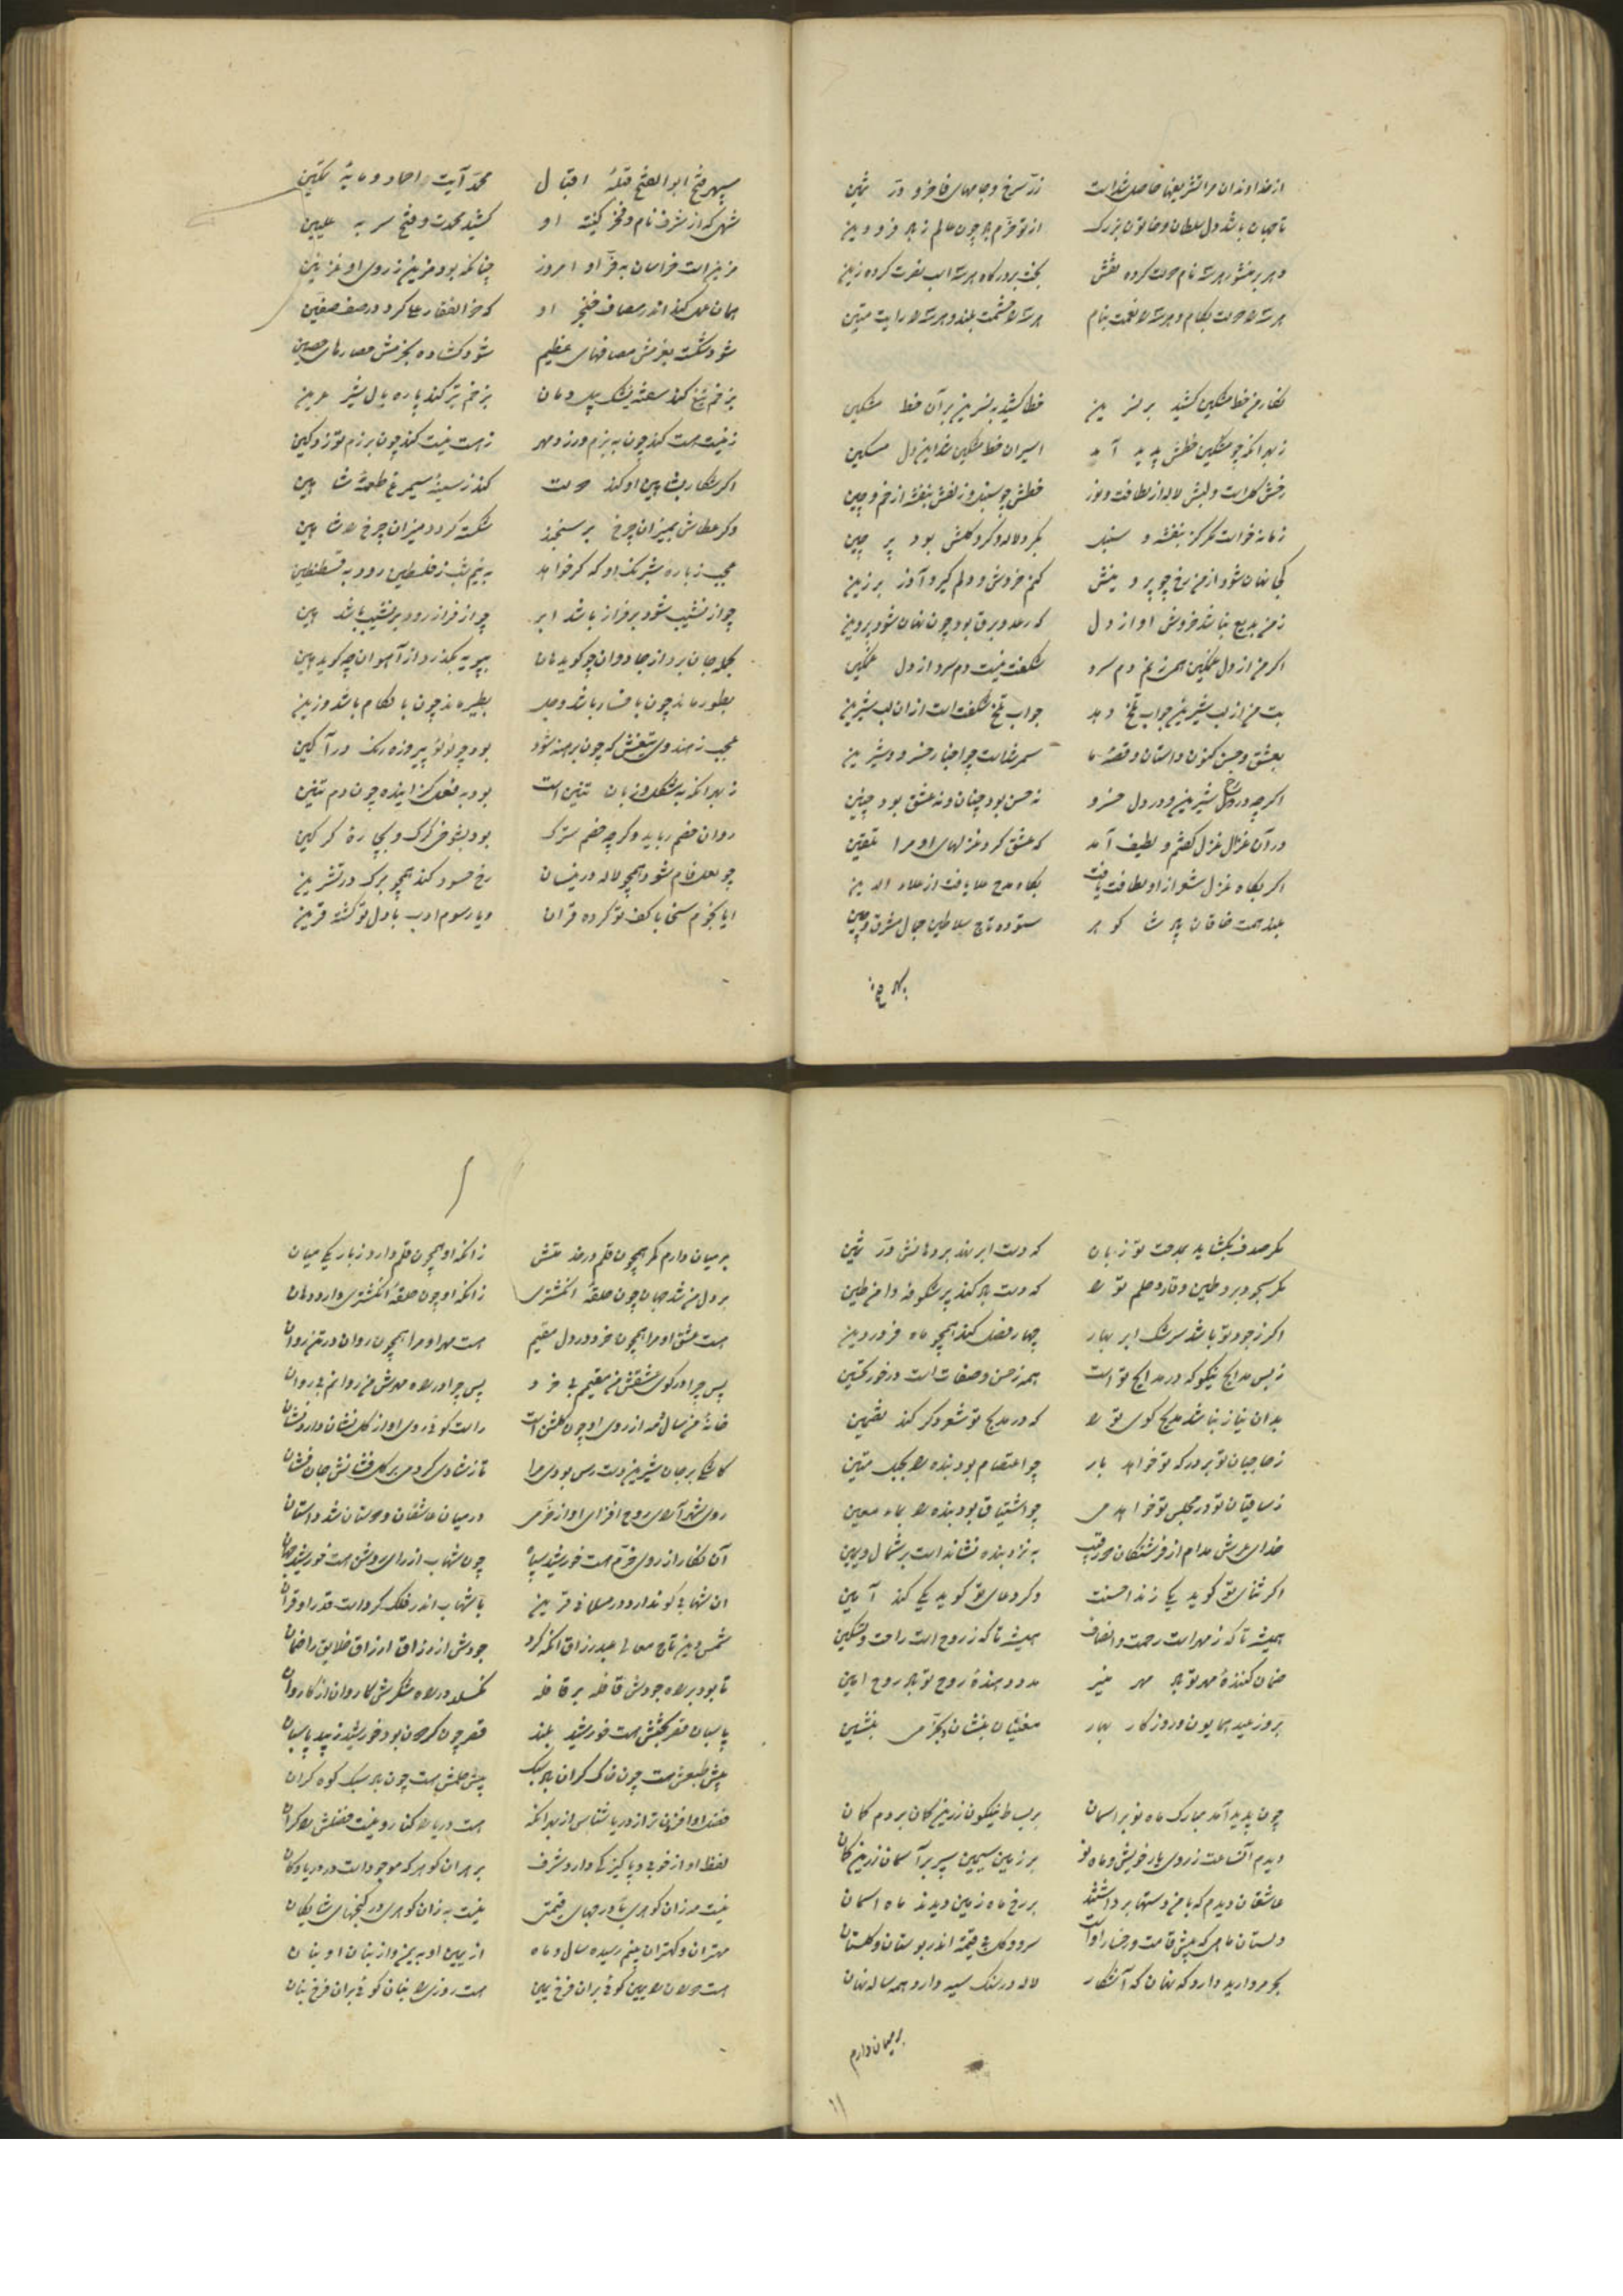 از خداوندان مرا تشریفها حاصل شداست زر سرخ و جامهای فاخر و در ثمین
تا جهان باشد دل سلطان و خاتون بزرک از تو خرم باد چون عالم ز باد فرودین
نکار من خط مشکین کشید بر نسرین خطا کشید بنسرین بر آن خط مشکین
ز بهر آنکه چو مشکین خطش پدید آید اسیران خط مشکین شد این دل مسکین
رخش کل است و لبش لاله از لطافت و نور خطش چو سنبل و زلفش بنفشه از خم و چین
زمانه خواست مکر کز بنفشه و سنبل بکرد لاله و کرد کلش بود پر چین
کجا نهان شود از من رخ چو پروینش کنم خروش و دلم کیرد آذر برزین
ز من بدیع نباشد خروش او از دل که رعد و برق بود چون نهان شود پروین
اکر من از دل غمکین همی زنم دم سرد شکفت نیست دم سرد از دل غمکین
بت من از لب شیرین جواب تلخ دهد جواب تلخ شکفت است از ان لب شیرین
بعشق و حسن کنون داستان و قصهٔ ما سمر شداست چو اخبار خسرو و شیرین
اکر چه در رخ شیرین و در دل خسرو نه حسن بود چنان و نه عشق بود چنین
در آن غزال غزل کفتم و لطیف آمد که عشق کرد غزلهای او مرا تلقین
اکر بکاه غزل شعر از او لطافت یافت بکاه مدح علا یافت از علاء الدین
بلند همت خاقان پادشا کوهر ستوده تاج سلاطین جمال مشرق و چین
سپهر فتح ابوالفتح قبلهٔ اقبال محمد آیت احماد و مایهٔ تمکین
شهی که از شرف نام و فخر کنیت او کشید محمدت و فتح سر به علیین
مزین است خراسان به فر او امروز چنانکه بود مزین ز روی او غزنین
همان عمل کند اندر مصاف خنجر او که ذوالفقار علی کرد در صف صفین
شود شکسته بعزمش مصافهای عظیم شود کشاده بحزمش حصارهای حصین
بزخم تیغ کند سفته یشک پیل دمان بزخم تیر کند پاره یال شیر عرین
ز نیست هست کند چون به بزم ورزد مهر ز هست نیست کند چون برزم توزد کین
اکر شکار بشاهین او کند دولت کند ز سینهٔ سیمرغ طعمهٔ شاهین
وکر عطاش بمیزان چرخ بر سنجند شکسته کردد میزان چرخ را شاهین
عجب ز بارهٔ شبرنک او که کر خواهد به نیم شب ز فلسطین رود به قسطنطین
چو از نشیب شود بر فراز باشد ابر چو از فراز رود بر نشیب باشد هین
بحمله جان برد از جادوان چو کوید هان بپویه بکذرد از آهوان چو کوید هین
عجب ز هندوی تیغش که چون برهنه شود بود چو لؤلؤ پیروزه رنک در آکین
ز بهر آنکه به شکل و زبان تنین است بود به فعل کزاینده چون دم تنین
روان خصم رباید وکر چه خصم سترک
چو لعل فام شود همچو لاله در نیسان رخ حسود کند همچو برک در تشرین
ایا بجزم سخا با کف تو کرده قران ویا رسوم ادب با دل تو کشته قرین
مکر صدف بکشاید بمدحت تو زبان که دست ابر نهد بر دهانش در ثمین
اکر ز جود تو باشد سرشک ابر بهار چهار فصل کند همچو ماه فروردین
ز بس مدایح نیکو که در مدایح تو است همه ز حسن و صفات است در خور تحسین
بدان نیاز نباشد مدیح کوی تو را که در مدیح تو شعر دکر کند تضمین
ز حاجبان تو بر درکه تو خواهد بار چو اعتصام بود بنده را بحبل متین
ز ساقیان تو در مجلس تو خواهد می چو اشتیاق بود بنده را بماء معین
خدای عرش مدام از فرشتکان دو رقیب به نزد بنده نشانده است بر شمال و یمین
اکر ثنای تو کوید یکی زند احسنت وکر دعای تو کوید یکی کند آمین
همیشه تا که ز مهر است رحمت و انصاف همیشه تا که ز روح است راحت و تسکین
ضمان کنندهٔ مهر تو باد مهر منیر مدد دهندهٔ روح تو باد روح امین
بروز عید همایون و روزکار بهار مغنیان بنشان و بخرمی بنشین
چون پدید آمد مبارک ماه نو بر اسمان بر بساط نیلکون زرین کمان بردم کمان
دیدم آن ساعت ز روی یار خویش و ماه نو بر زمین سیمین سپر بر آسمان زرین کمان
عاشقان دیدم که با من دستها برداشتند بر رخ ماه زمین دیدند ماه اسمان
دلستان ماهی که پیش قامت و رخسار او است سرو و کل بی قیمت اندر بوستان و کلستان
کر مروارید دارد که نهان که آشکار لاله در سنک سیه دارد همه ساله نهان
بر میان دارم
بر میان دارم کمر همچون قلم در خدمتش زانکه او همچون قلم دارد ز باریکی میان
بر دل من شد جهان چون حلقهٔ انکشتری زانکه او چون حلقهٔ انکشتری دارد دهان
هست عشق او مرا همچون خرد در دل مقیم هست مهر او مرا همچون روان در تن روان
پس چرا در کوی عشقش من مقیم بی خرد پس چرا در راه مهرش من روانم بی روان
خانهٔ من سال و مه از روی او چون کلشن است راست کوئی روی او از کل نشان دارد نشان
کاشکی بر جان شیرین دست رس بودی مرا تا ز شادی کردمی بر کل فشانش جان فشان
روی شهر آرای روح افزای او از خرمی در میان عاشقان و دوستان شد داستان
آن نکار از روی خرم هست خورشید سپاه چون شهاب از رای روشن هست خورشید جهان
ان شهابی کو ندارد در مسلمانی قرین با شهاب اندر فلک کرد است قدر او قران
شمس دین تاج معالی عبد رزاق انکه کرد جودش از رزاق ارزاق خلایق را ضمان
تا بود بر راه جودش قافله بر قافله نکسلد در راه شکرش کاروان از کاروان
پاسبان قصر بختش هست خورشید بلند قصر چون کردون بود خورشید زیبد پاسبان
پیش طبعش هست چون خاک کران باد سبک پیش حلمش هست چون باد سبک کوه کران
فضل او افزون تر از دریا شناس از بهر انکه هست دریا را کنار و نیست فضلش را کران
لفظ او از خوبی و پاکیزکی دارد شرف بر هر ان کوهر که موجود است در دریا و کان
مهتران و کهتران بینم رسیده سال و ماه از یمین او به یمن و از بنان او بنان